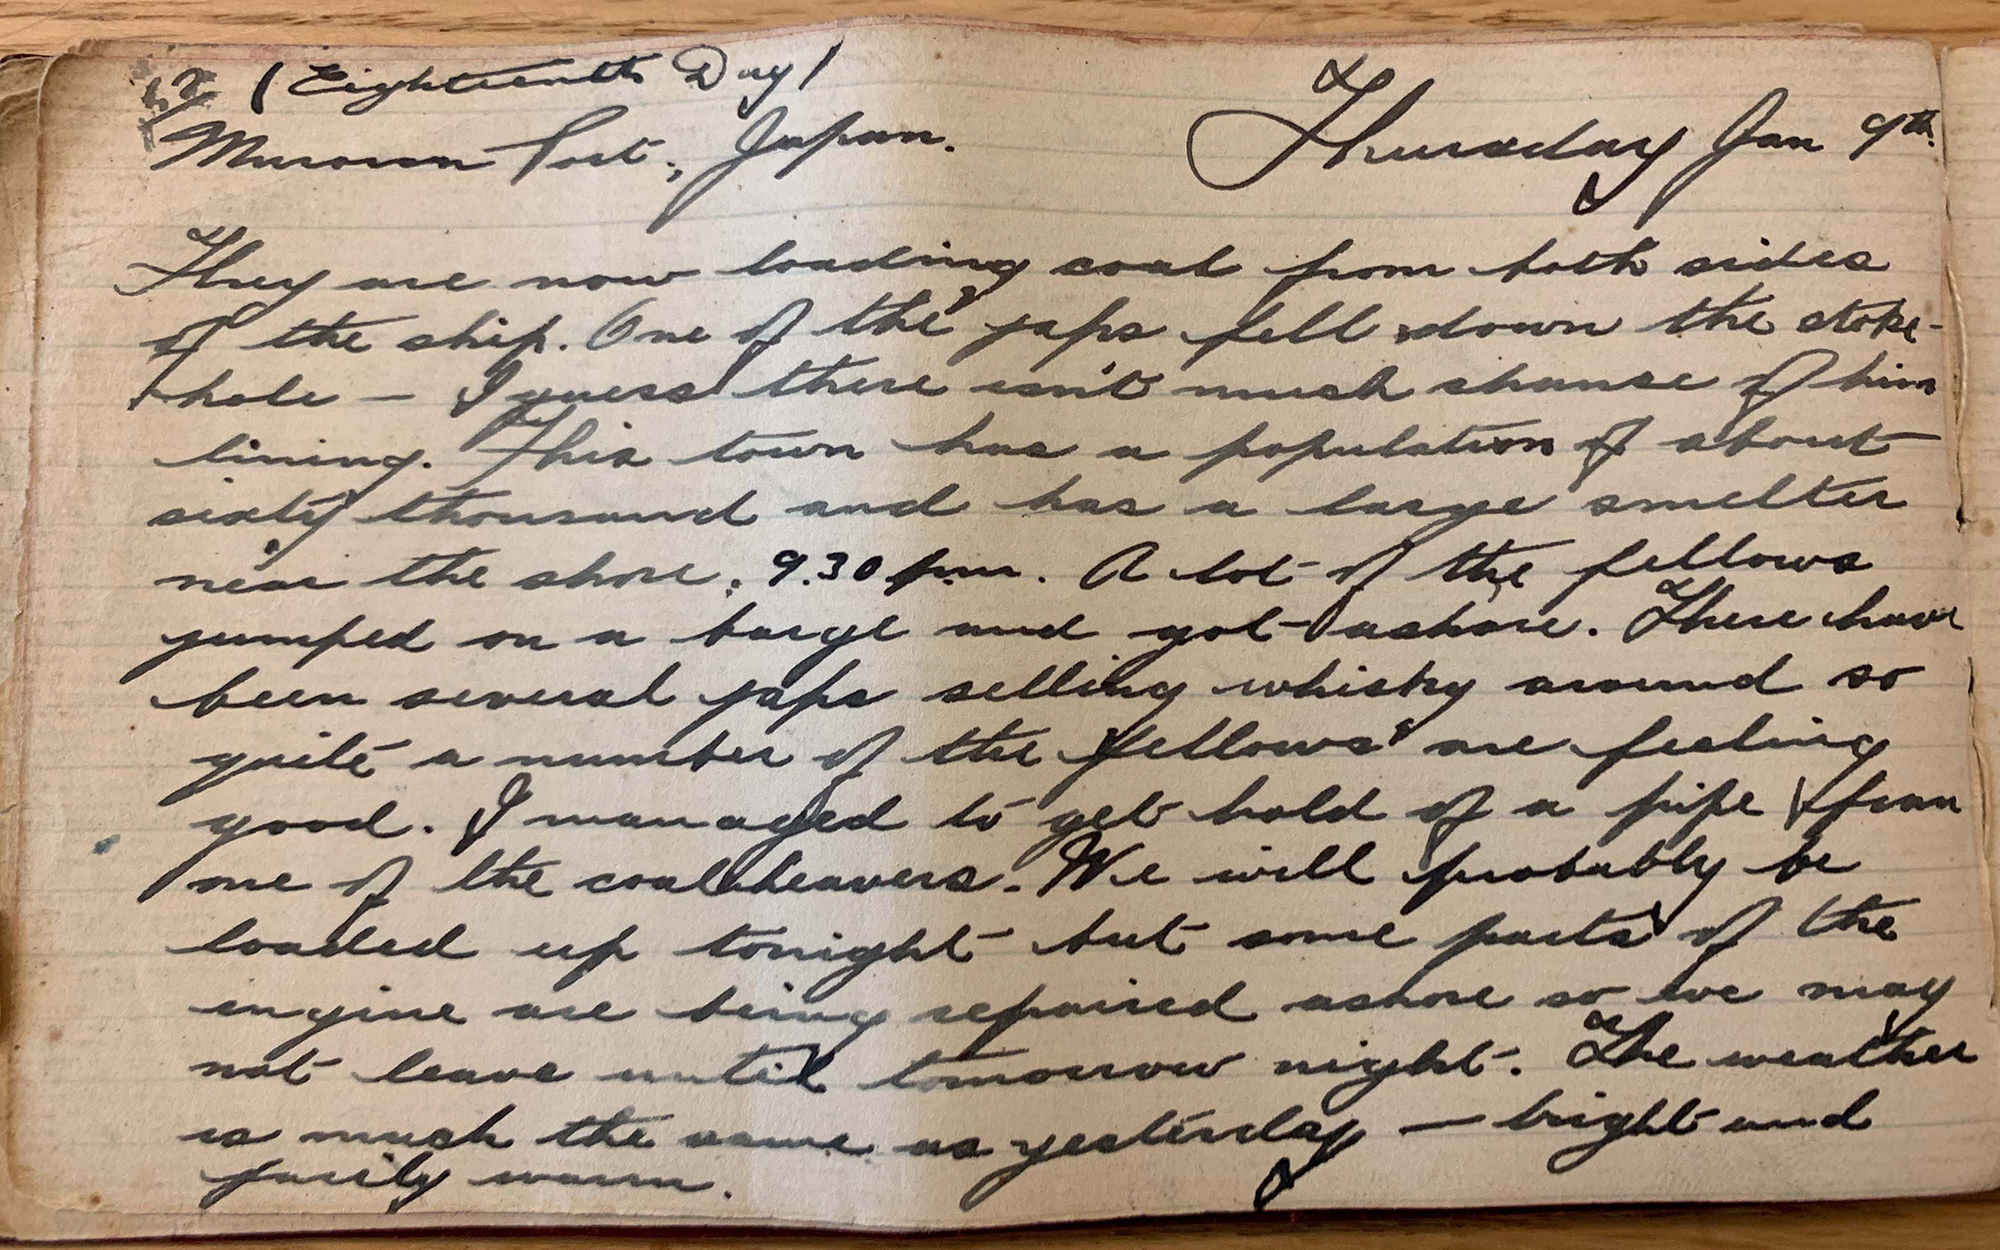 (Eighteenth Day)
Muroran Port, Japan. Thursday Jan 9th.
They are now loading coal from both sides
of the ship. One of the japs fell down the stoke-
hole — I guess there isn't much chance of him
living. This town has a population of about
sixty thousand and has a large smelter
near the shore. 9.30 pm. A lot of the fellows
jumped on a barge and got ashore. There have
been several japs selling whisky around so
quite a number of the fellows are feeling
good. I managed to get hold of a pipe from
one of the coalheavers. We will probably be
loaded up tonight but some parts of the
engine are being repaired ashore so we may
not leave until tomorrow night. The weather
is much the same as yesterday — bright and
fairly warm.